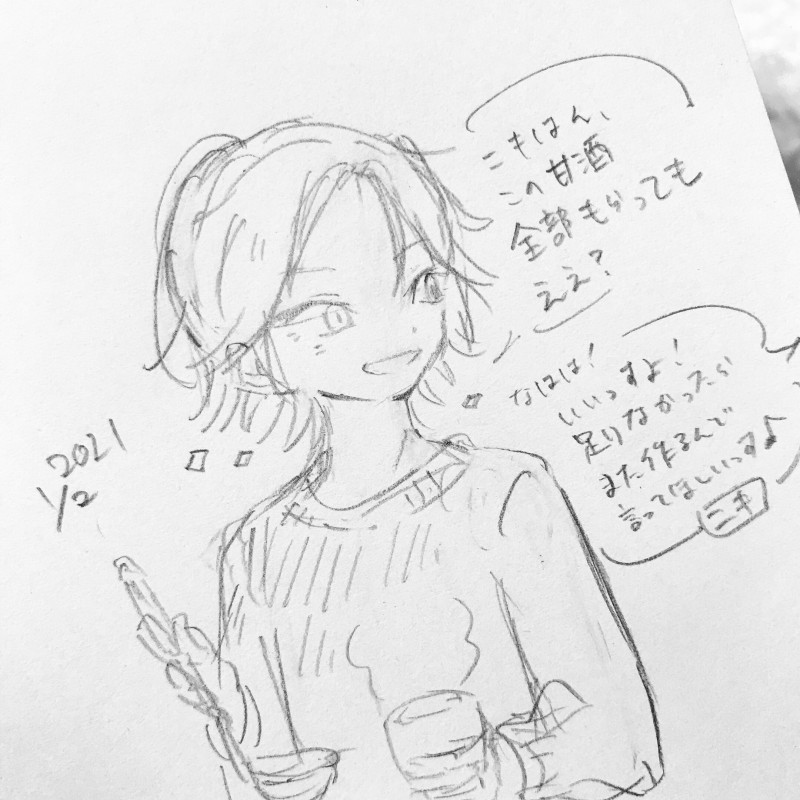 ニキはん、
この甘酒
全部もらっても
ええ?
なはは!
いいっすよ!
足りなかったら
また作るんで
言ってほしいっすよ
ニキ
2021
1/2